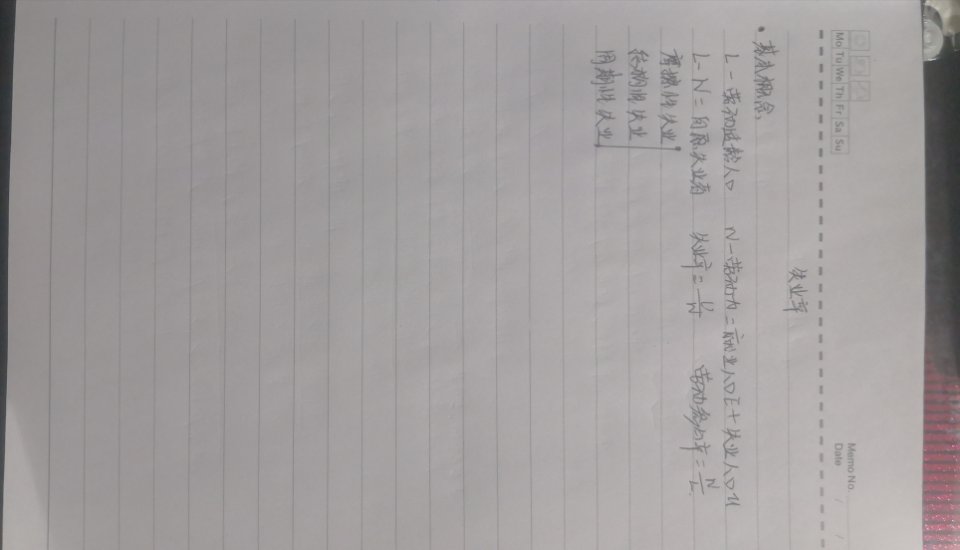 Mo Tu We Th Fr Sa Su
Memo No.
Date / /
失业率
• 基本概念
L - 劳动适龄人口 N - 劳动力 = 就业人口E + 失业人口U
L - N = 自愿失业者 失业率 = U/N 劳动参与率 = N/L
摩擦性失业
结构性失业
周期性失业